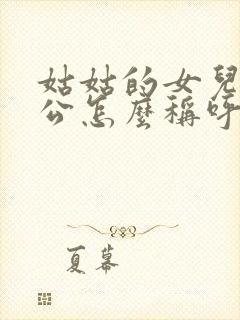 姑姑的女兒
公怎麼稱呼
夏蟬